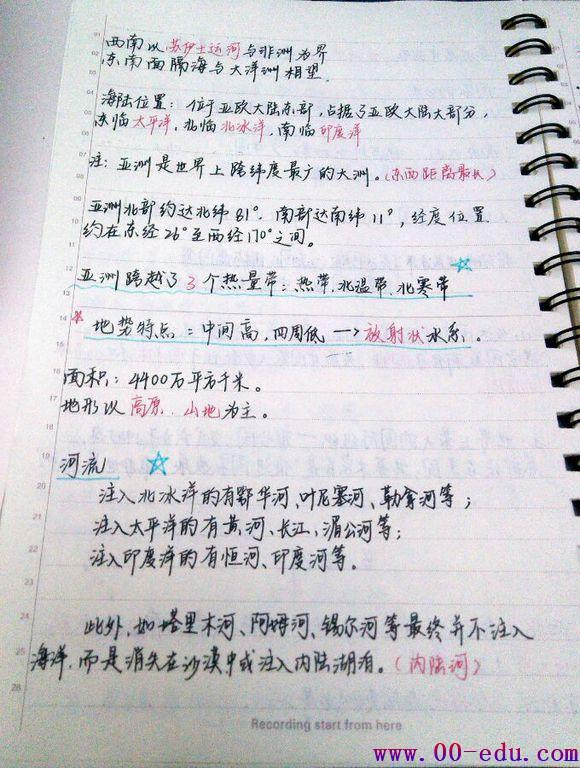 西南以苏伊士运河与非洲为界
东南面隔海与大洋洲相望
海陆位置：位于亚欧大陆东部，占据了亚欧大陆大部分，
东临太平洋，北临北冰洋，南临印度洋
注：亚洲是世界上跨纬度最广的大洲。（东西距离最长）
亚洲北部约达北纬81°，南部达南纬11°，经度位置
约在东经26°至西经170°之间。
亚洲跨越了3个热量带：热带、北温带、北寒带
*地势特点：中间高，四周低→放射状水系。
面积：4400万平方千米。
地形以高原、山地为主。
河流
注入北冰洋的有鄂毕河、叶尼塞河、勒拿河等；
注入太平洋的有黄河、长江、湄公河等；
注入印度洋的有恒河、印度河等。
此外，如塔里木河、阿姆河、锡尔河等最终并不注入
海洋，而是消失在沙漠中或注入内陆湖泊。（内陆河）
Recording start from here
www.00-edu.com